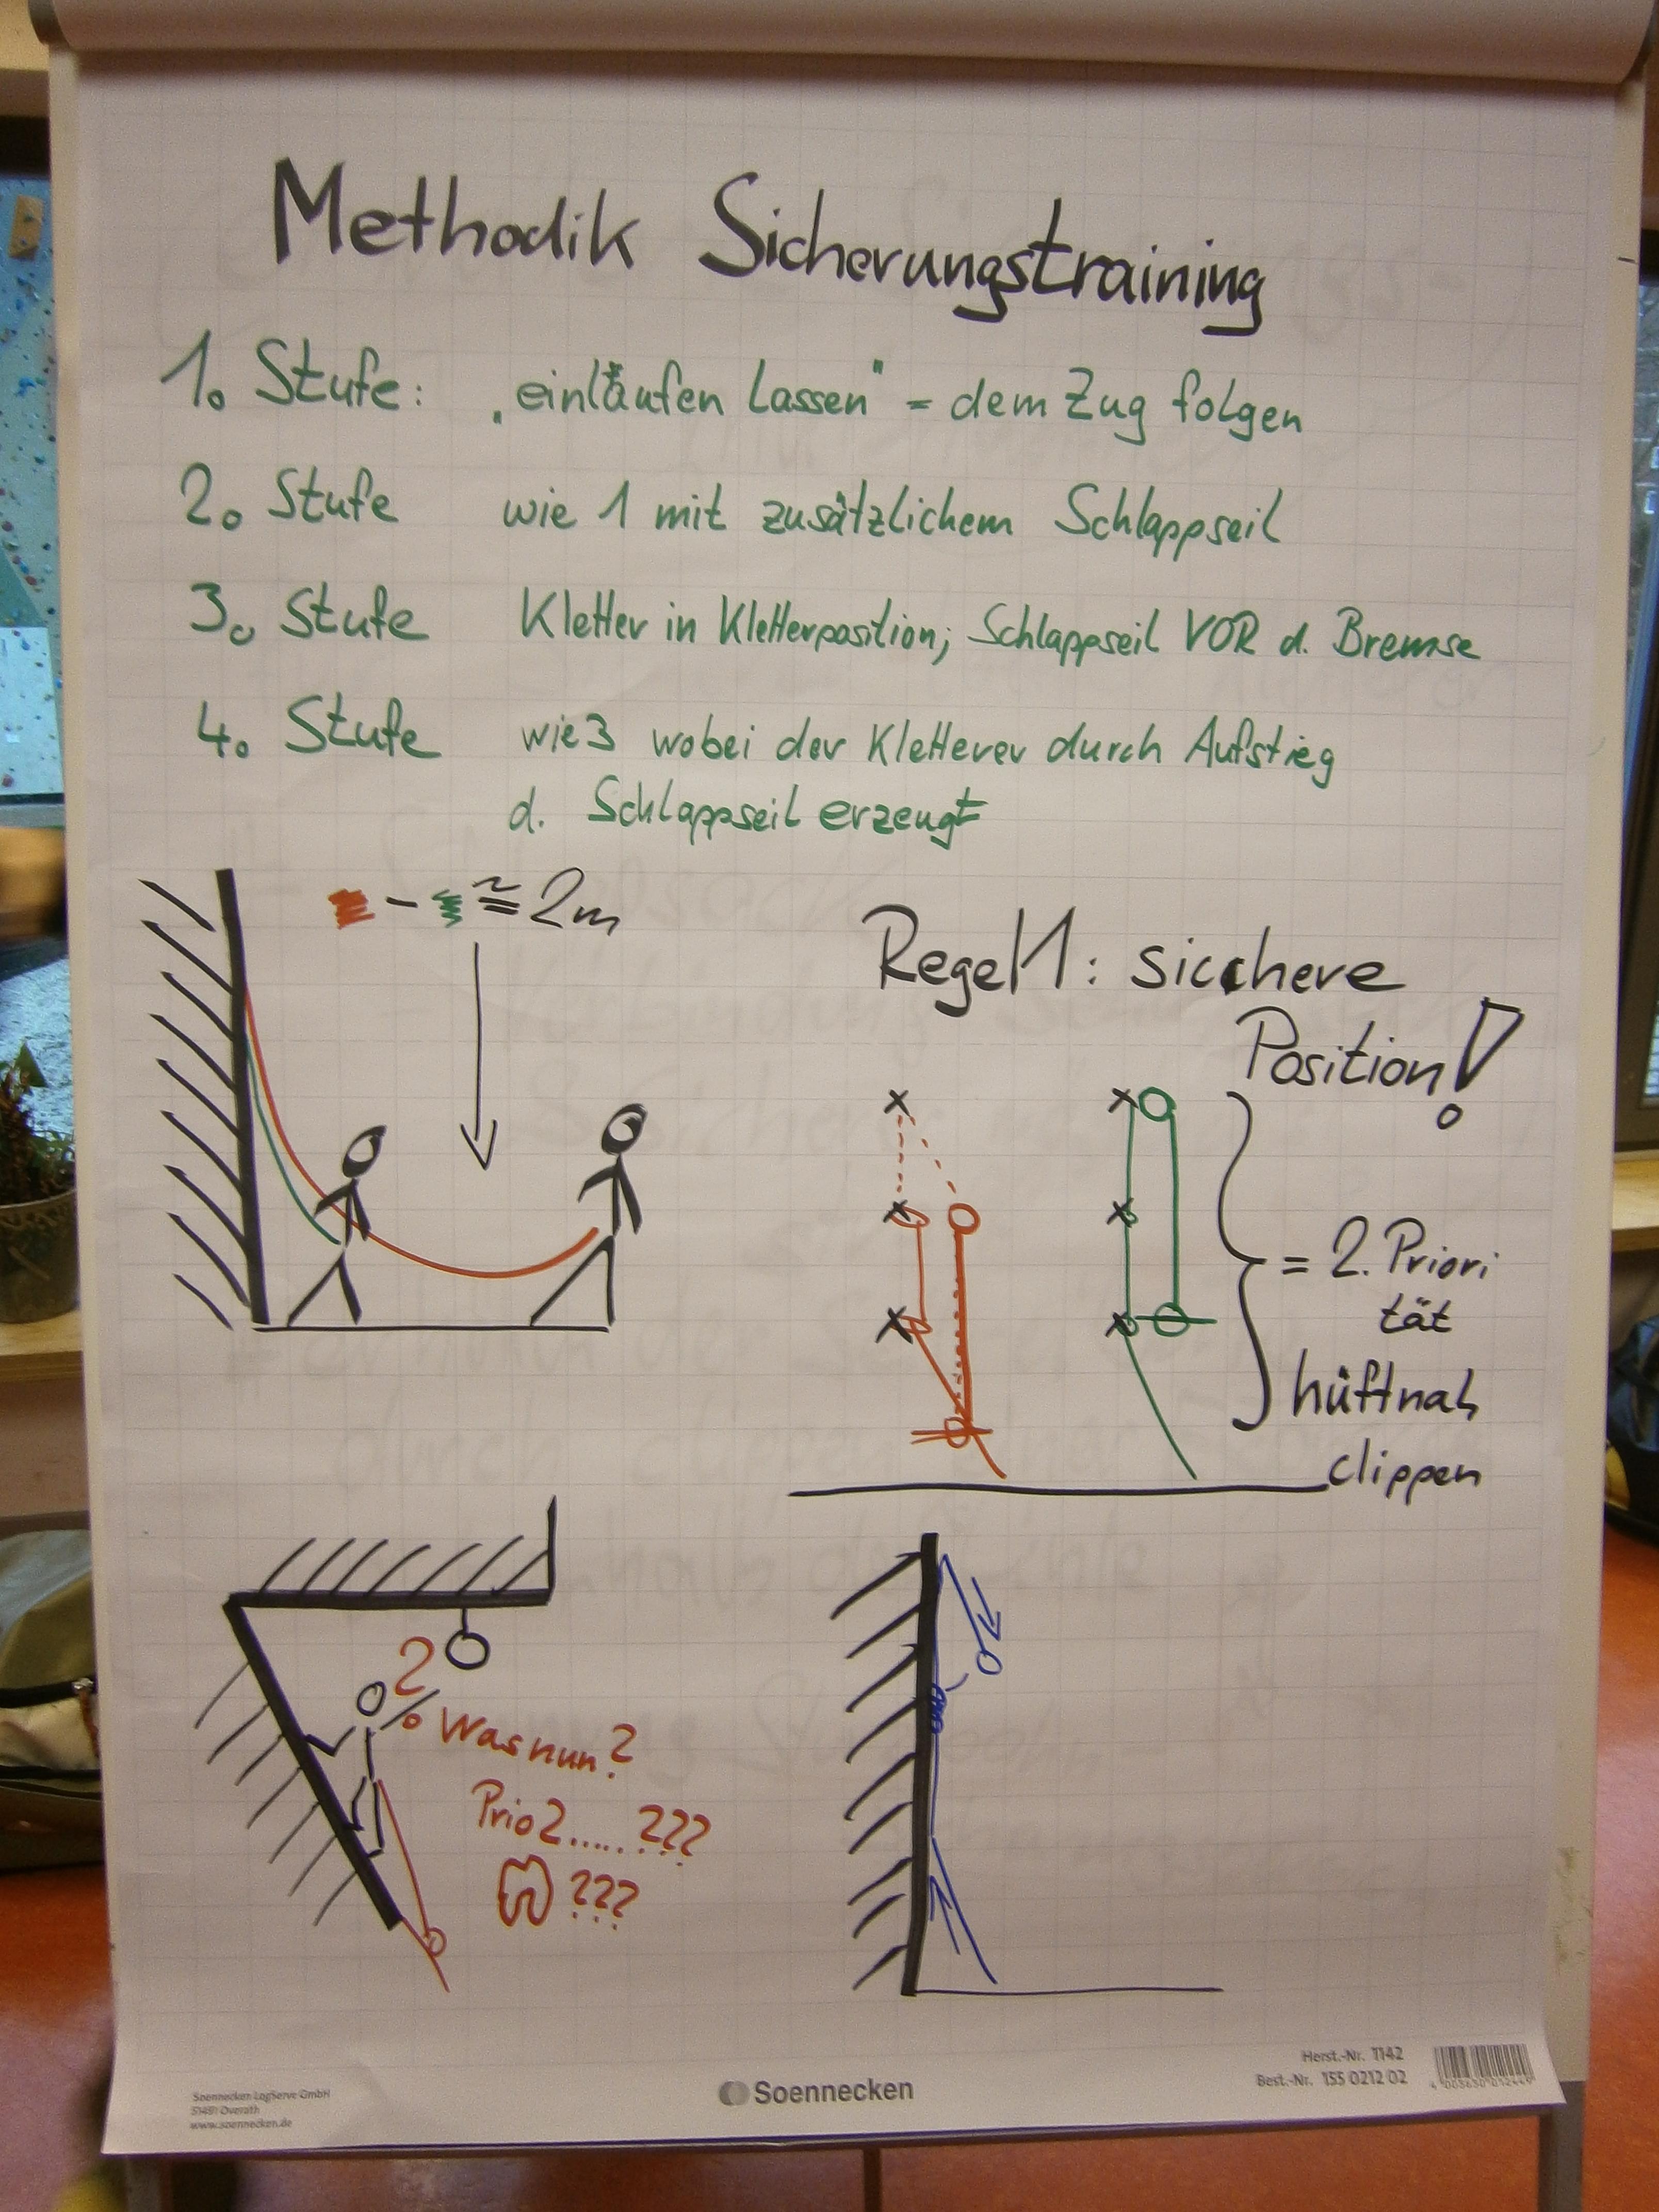 Methodik Sicherungstraining
1. Stufe: „einläufen lassen" = dem Zug folgen
2. Stufe wie 1 mit zusätzlichem Schlappseil
3. Stufe Kletter in Kletterposition; Schlappseil VOR d. Bremse
4. Stufe wie 3 wobei der Kletterer durch Aufstieg
d. Schlappseil erzeugt
- ≅ 2m
Regel 1: sicchere
Position!
= 2. Priori
tät
hüftnah
clippen
?
Was nun?
Prio 2..... ???
???
Soennecken LogServe GmbH
51491 Overath
www.soennecken.de
Soennecken
Herst.-Nr. 1142
Best.-Nr. 155 0212 02